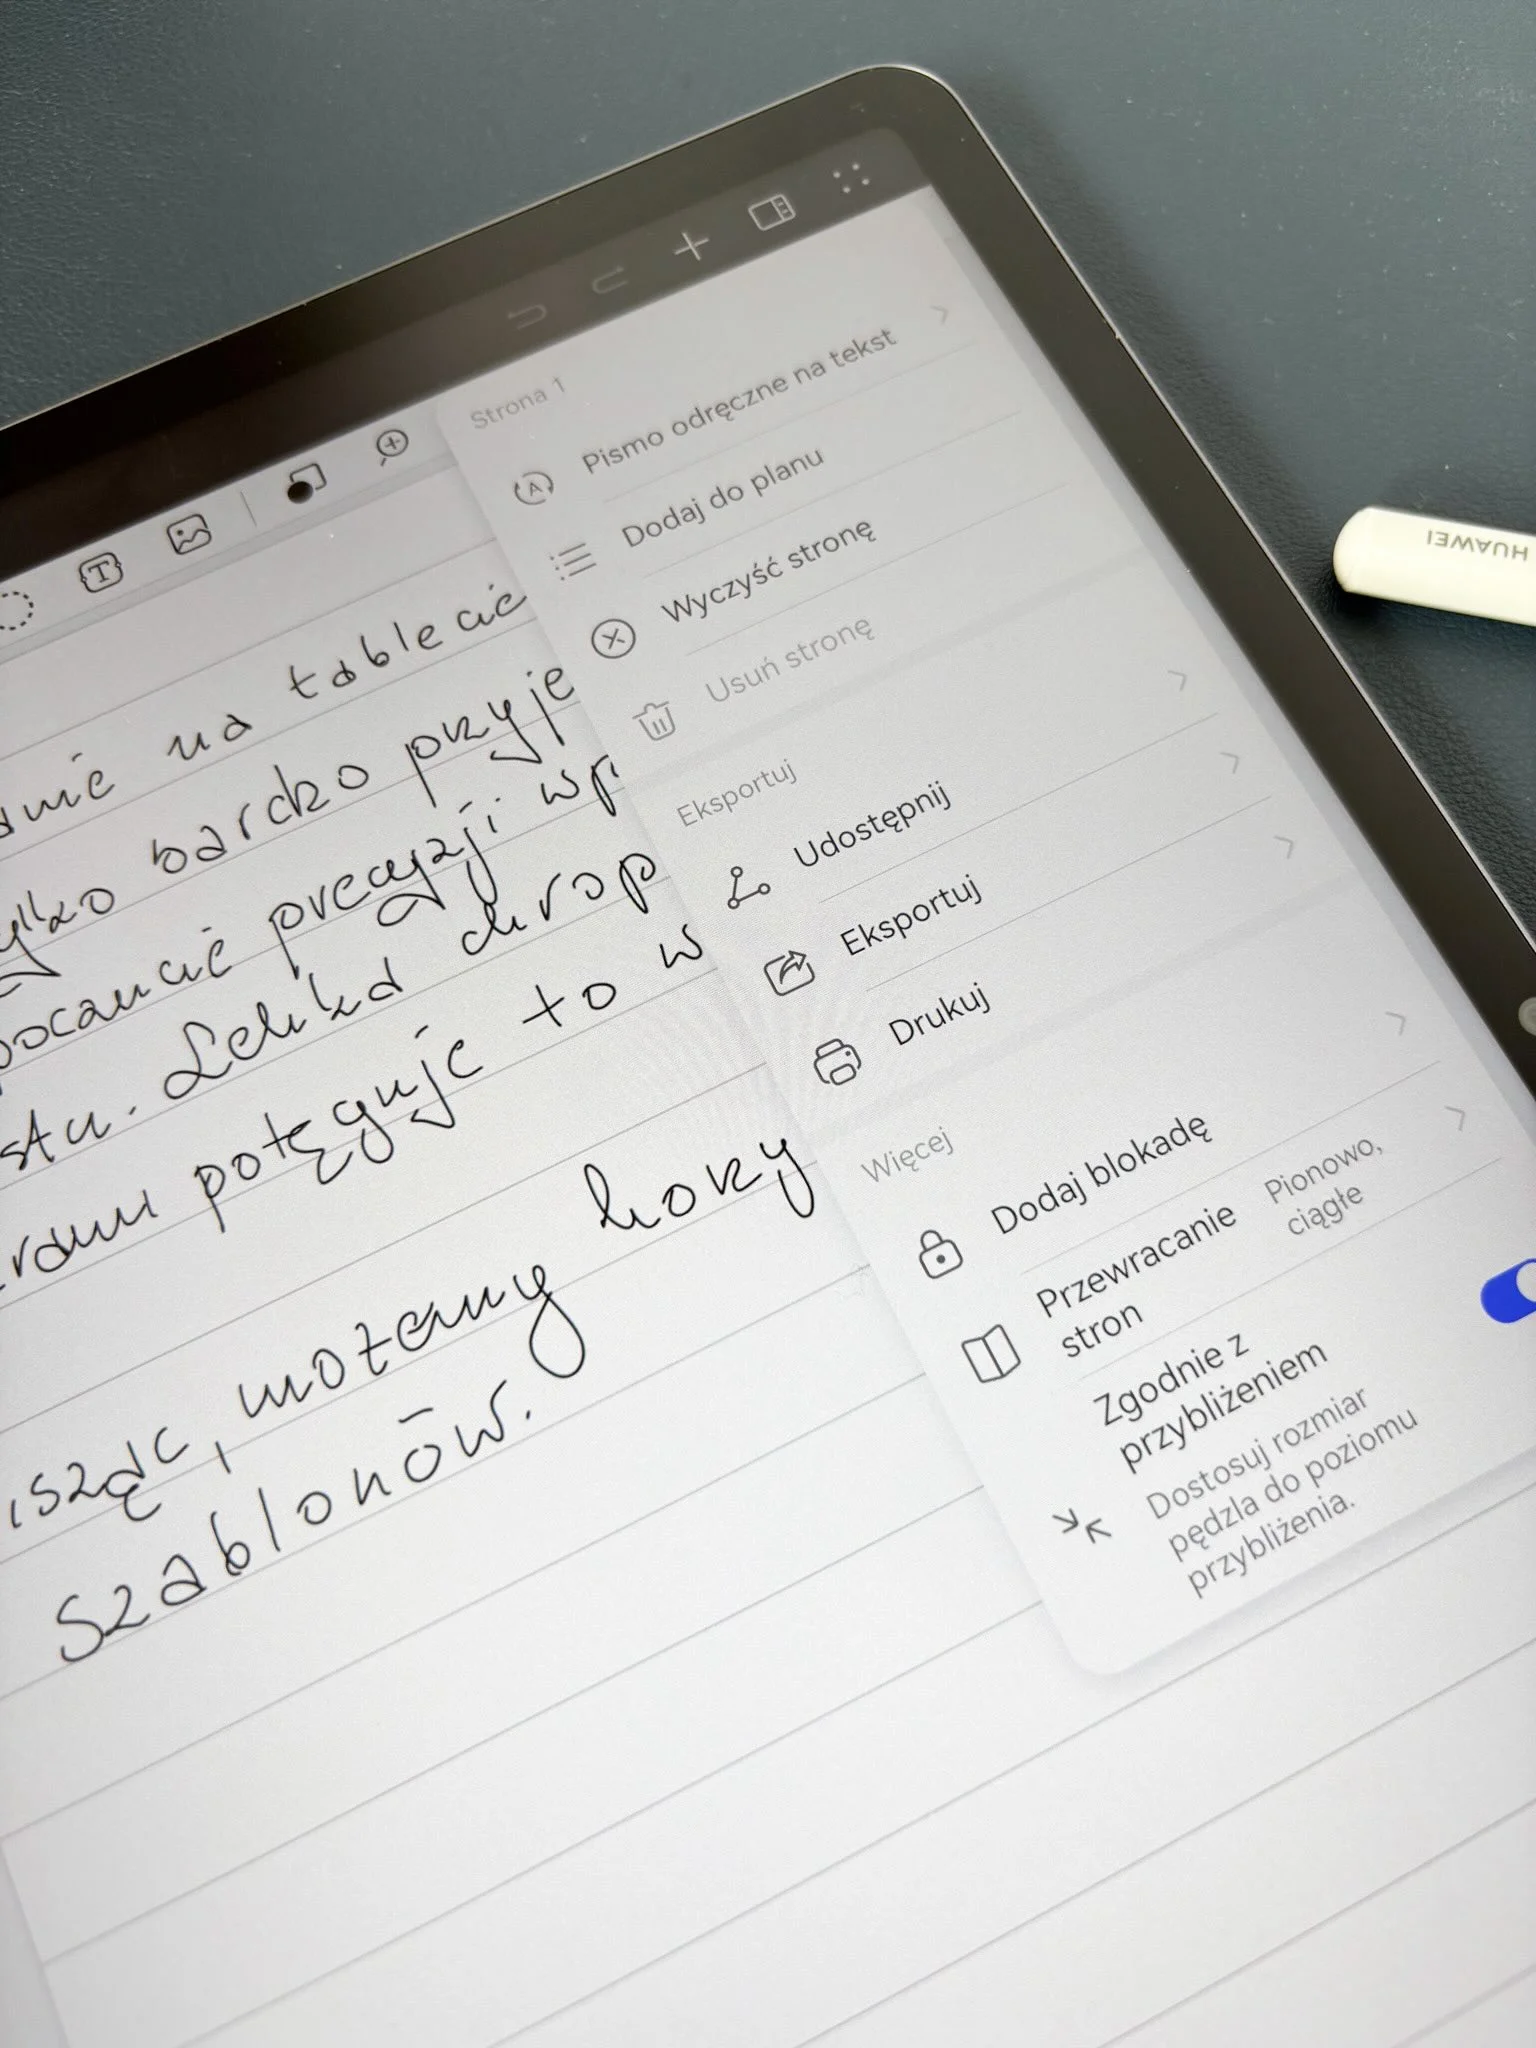 Strona 1
Pismo odręczne na tekst
Dodaj do planu
Wyczyść stronę
Usuń stronę
Eksportuj
Udostępnij
Eksportuj
Drukuj
Więcej
Dodaj blokadę
Przewracanie
stron
Pionowo,
ciągłe
Zgodnie z
przybliżeniem
Dostosuj rozmiar
pędzla do poziomu
przybliżenia.
na tablecie
ylko bardzo przyje
precyzji wp
stu. Lekka chrop
potęguje to w
isząc, możemy korzy
szablonów.
HUAWEI